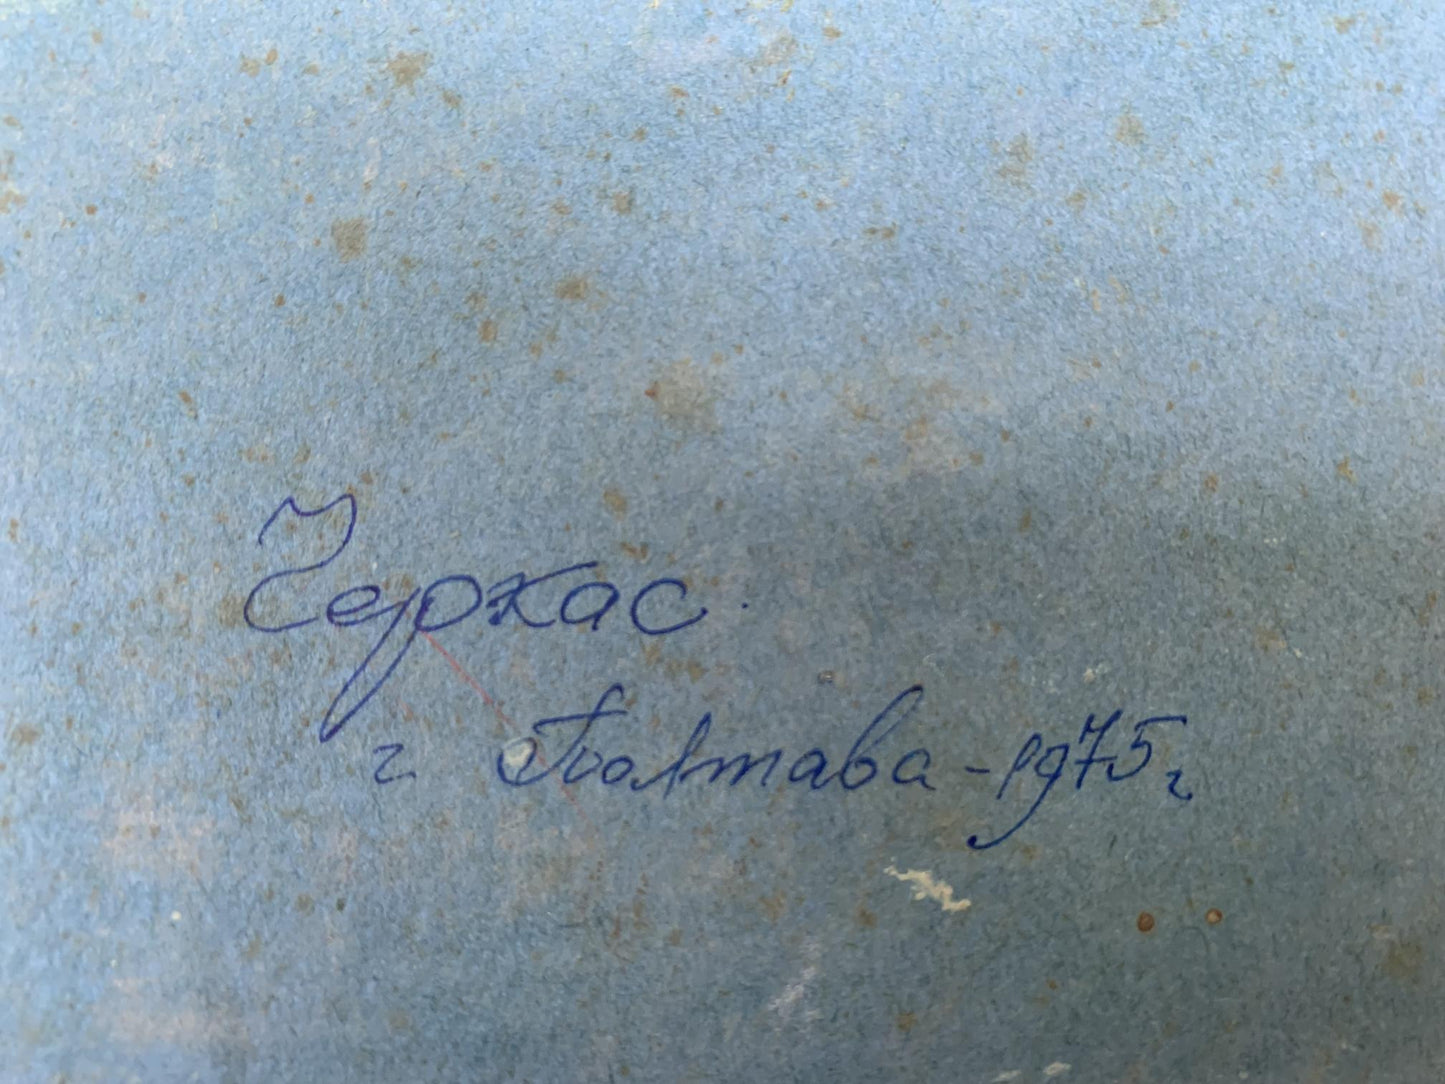 Черкас.
г Полтава - 1975 г